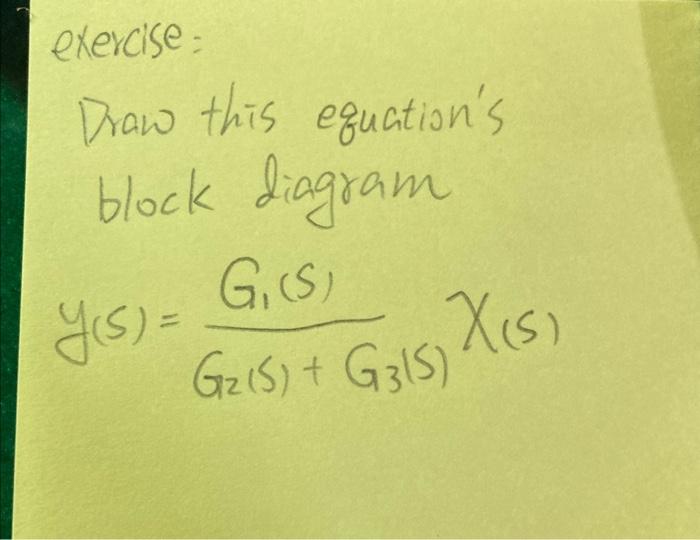 exercise:
Draw this equation's
block diagram
y(s) = G₁(S) / G₂(S) + G₃(S) X(s)